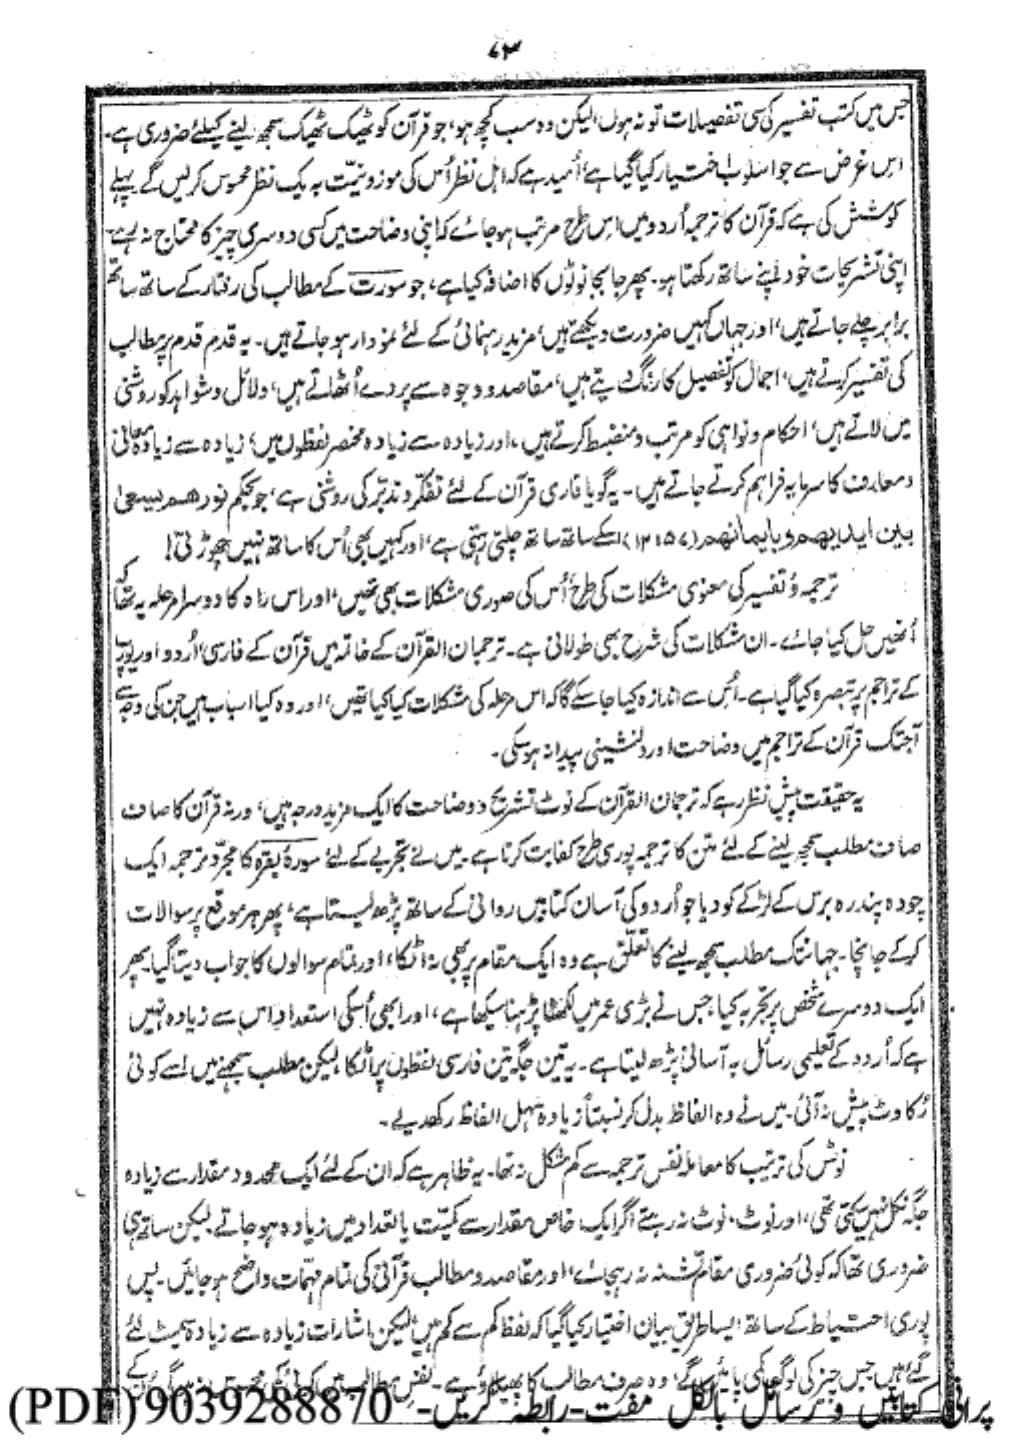 ۷۳
جس میں کتب تفسیر کی سی تفصیلات تو نہ ہوں، لیکن وہ سب کچھ ہو، جو قرآن کو ٹھیک ٹھیک سمجھ لینے کیلئے ضروری ہے۔
اس غرض سے جو اسلوب اختیار کیا گیا ہے، اُمید ہے کہ اہل نظر اُس کی موزونیت بہ یک نظر محسوس کر لیں گے پہلے
کوشش کی ہے کہ قرآن کا ترجمہ اُردو میں اس طرح مرتب ہو جائے کہ اپنی وضاحت میں کسی دوسری چیز کا محتاج نہ رہے۔
اپنی تشریحات خود اپنے ساتھ رکھتا ہو۔ پھر جا بجا نوٹوں کا اضافہ کیا ہے، جو سورت کے مطالب کی رفتار کے ساتھ ساتھ
برابر چلے جاتے ہیں، اور جہاں کہیں ضرورت دیکھتے ہیں، مزید رہنمائی کے لئے نمودار ہو جاتے ہیں۔ یہ قدم قدم پر مطالب
کی تفسیر کرتے ہیں، اجمال کو تفصیل کا رنگ دیتے ہیں، مقاصد و وجوہ سے پردے اُٹھاتے ہیں، دلائل و شواہد کو روشنی
میں لاتے ہیں، احکام و نواہی کو مرتب و منضبط کرتے ہیں، اور زیادہ سے زیادہ مختصر لفظوں میں، زیادہ سے زیادہ معانی
و معارف کا سرمایہ فراہم کرتے جاتے ہیں۔ یہ گویا قاری قرآن کے لئے تفکر و تدبر کی روشنی ہے، جو بحکم نورھم یسعیٰ
بین ایدیھم و بایمانھم (۱۲:۵۷) اسکے ساتھ ساتھ چلتی رہتی ہے، اور کہیں بھی اُس کا ساتھ نہیں چھوڑتی!
ترجمہ و تفسیر کی معنوی مشکلات کی طرح اُس کی صوری مشکلات بھی تھیں، اور اس راہ کا دوسرا مرحلہ یہ تھا کہ
اُنھیں حل کیا جائے۔ ان مشکلات کی شرح بھی طولانی ہے۔ ترجمان القرآن کے خاتمہ میں قرآن کے فارسی، اُردو اور یورپ
کے تراجم پر تبصرہ کیا گیا ہے۔ اُس سے اندازہ کیا جا سکے گا کہ اس مرحلہ کی مشکلات کیا کیا تھیں، اور وہ کیا اسباب ہیں جن کی وجہ سے
آجتک قرآن کے تراجم میں وضاحت اور دلنشینی پیدا نہ ہو سکی۔
یہ حقیقت پیش نظر رہے کہ ترجمان القرآن کے نوٹ تشریح و وضاحت کا ایک مزید درجہ ہیں، ورنہ قرآن کا صاف
صاف مطلب سمجھ لینے کے لئے متن کا ترجمہ پوری طرح کفایت کرتا ہے۔ میں نے تجربے کے لئے سورۂ بقرہ کا مجرّد ترجمہ ایک
چودہ پندرہ برس کے لڑکے کو دیا جو اُردو کی آسان کتابیں روانی کے ساتھ پڑھ لیتا ہے، پھر ہر موقع پر سوالات
کر کے جانچا۔ جہانتک مطلب سمجھ لینے کا تعلق ہے وہ ایک مقام پر بھی نہ اٹکا، اور تمام سوالوں کا جواب دیتا گیا۔ پھر
ایک دوسرے شخص پر تجربہ کیا، جس نے بڑی عمر میں لکھنا پڑھنا سیکھا ہے، اور ابھی اُسکی استعداد اس سے زیادہ نہیں
ہے کہ اُردو کے تعلیمی رسائل بہ آسانی پڑھ لیتا ہے۔ یہ تین جگہ تین فارسی لفظوں پر اٹکا، لیکن مطلب سمجھنے میں اسے کوئی
رُکاوٹ پیش نہ آئی۔ میں نے وہ الفاظ بدل کر نسبتاً زیادہ سہل الفاظ رکھدیے۔
نوٹس کی ترتیب کا معاملہ نفس ترجمہ سے کم مشکل نہ تھا۔ یہ ظاہر ہے کہ ان کے لئے ایک محدود مقدار سے زیادہ
جگہ نکل نہیں سکتی تھی، اور نوٹ، نوٹ نہ رہتے اگر ایک خاص مقدار سے کمیّت یا تعداد میں زیادہ ہو جاتے۔ لیکن ساتھ ہی
ضروری تھا کہ کوئی ضروری مقام تشنہ نہ رہجائے، اور مقاصد و مطالب قرآنی کی تمام مہمّات واضح ہو جائیں۔ پس
پوری احتیاط کے ساتھ ایسا طریق بیان اختیار کیا گیا کہ لفظ کم سے کم ہیں، لیکن اشارات زیادہ سے زیادہ سمیٹ لئے
گئے ہیں جس چیز کی لوگ کمی پائیں گے، وہ صرف مطالب کا پھیلاؤ ہے۔ نفس مطالب میں کوئی کمی محسوس نہ ہوگی
پرانی کتابیں و رسائل بالکل مفت- رابطہ کریں- 9039288870 (PDF)